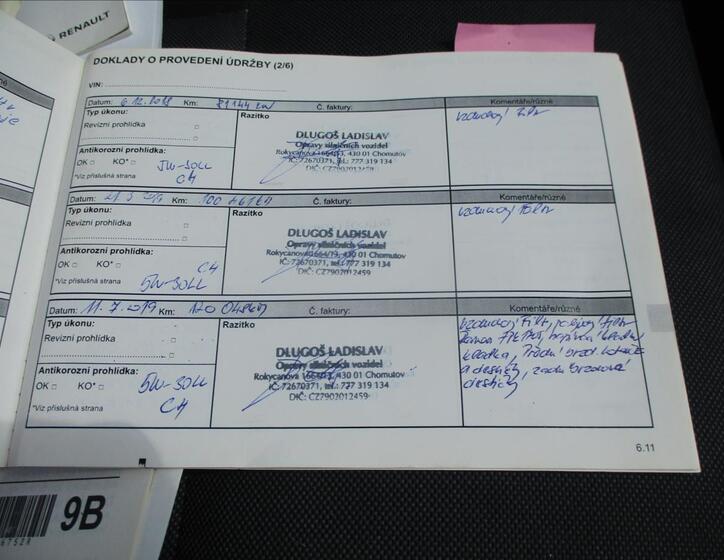 RENAULT
DOKLADY O PROVEDENÍ ÚDRŽBY (2/6)
VIN:
Datum: 6.12.2018 Km: 81144 km Č. faktury: Komentáře/různé
Typ úkonu: Razítko
Revizní prohlídka
vzduchový filtr
Antikorozní prohlídka:
OK KO*
*Viz příslušná strana
5W-30LL
C4
DŁUGOŠ LADISLAV
Opravy silničních vozidel
Rokycanova 1664/13, 430 01 Chomutov
IČ: 72670371, tel.: 777 319 134
DIČ: CZ7902012459
Datum: 21.3.2019 Km: 100 Č. faktury: Komentáře/různé
Typ úkonu: Razítko
Revizní prohlídka
vzduchový filtr
Antikorozní prohlídka:
OK KO*
*Viz příslušná strana
C4
5W-30LL
DŁUGOŠ LADISLAV
Opravy silničních vozidel
Rokycanova 1664/13, 430 01 Chomutov
IČ: 72670371, tel.: 777 319 134
DIČ: CZ7902012459
Datum: 11.7.2019 Km: 120 Č. faktury: Komentáře/různé
Typ úkonu: Razítko
Revizní prohlídka
Antikorozní prohlídka:
OK KO*
*Viz příslušná strana
5W-30LL
C4
DŁUGOŠ LADISLAV
Opravy silničních vozidel
Rokycanova 1664/13, 430 01 Chomutov
IČ: 72670371, tel.: 777 319 134
DIČ: CZ7902012459
vzduchový filtr, pylový filtr
kladka, Přední brzd. kotouče
a destičky, zadní brzdové
destičky
6.11
9B